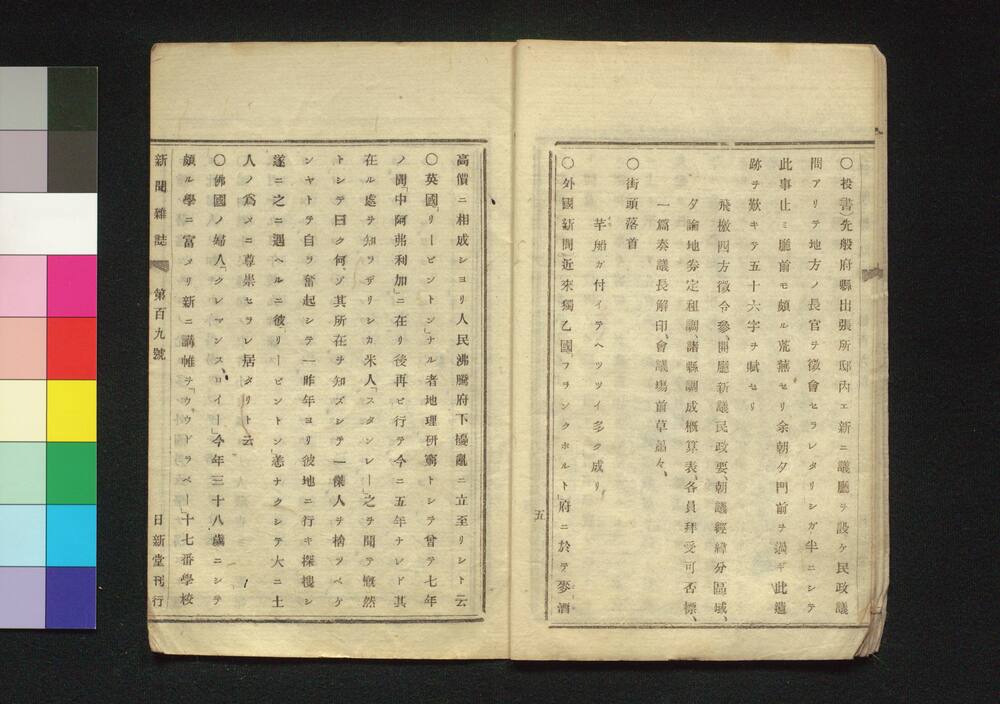 ○投書)先般府縣出張所邸內エ新ニ議廳ヲ設ケ民政議
問アリテ地方ノ長官ヲ徵會セラレタリシガ半ニシテ
此事止ミ廳前モ頗ル荒蕪セリ余朝夕門前ヲ過ギ此遺
跡ヲ歎キテ五十六字ヲ賦セリ
飛檄四方徵令參、開廳新議民政要、朝議經緯分區域、
夕論地券定租調、諸縣調成槪算表、各員拜受可否標、
一篇奏議長解印、會議場前草蕭々、
○街頭落首
芋船ガ付イテヘツツイ多ク成リ
○外國新聞)近來獨乙國「フランクホルト」府ニ於テ麥酒
五
高價ニ相成シヨリ人民沸騰府下擾亂ニ立至リシト云
○英國「リービントン」ナル者地理硏窮トシテ曾テ七年
ノ間「中阿弗利加」ニ在リ後再ビ行テ今ニ五年ナレド其
在ル處ヲ知ラザリシカ米人「スタンレー」之ヲ聞テ慨然
トシテ曰ク何ゾ其所在ヲ知ズシテ一傑人ヲ捨ツベケ
ンヤトテ自ラ奮起シテ一昨年ヨリ彼地ニ行キ探樓シ
遂ニ之ニ遇ヘルニ彼「リービントン」恙ナクシテ大ニ土
人ノ爲メニ尊崇セラレ居タリト云
○佛國ノ婦人「クレマンス、ロイー」今年三十八歲ニシテ
頗ル學ニ富メリ新ニ講帷ヲ「ウウドラベー」十七番學校
新聞雜誌 第百九號 日新堂刊行